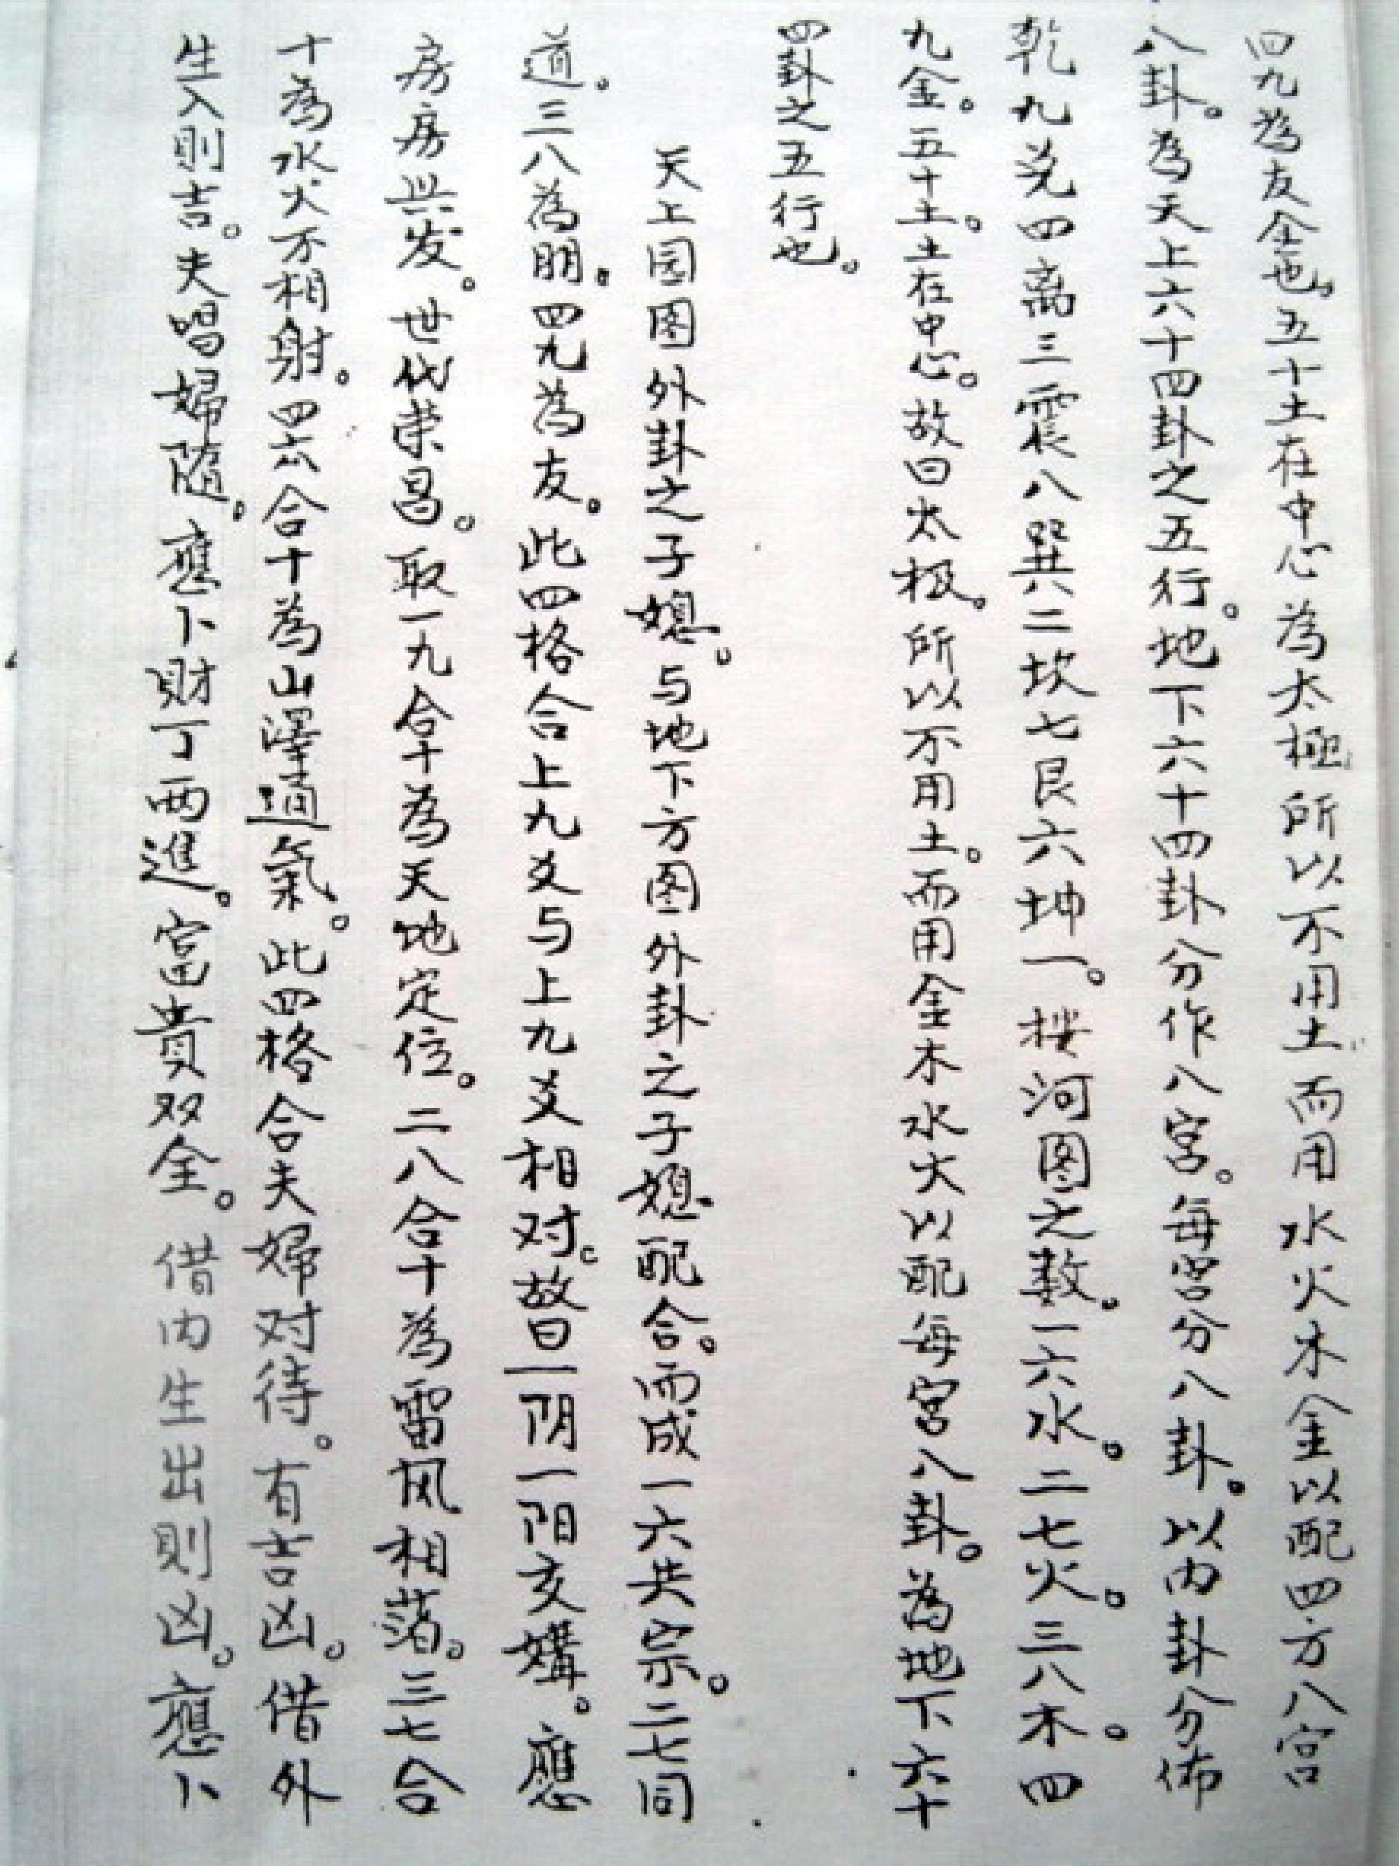 四九為友金也。五十土在中心為太極所以不用土。而用水火木金以配四方八宮
八卦。為天上六十四卦之五行。地下六十四卦分作八宮。每宮分八卦。以内卦分佈
乾九兑四离三震八巽二坎七艮六坤一。按河图之数。一六水。二七火。三八木。四
九金。五十土。土在中心。故曰太极。所以不用土。而用金木水火以配每宮八卦。為地下六十
四卦之五行也。
天上园图外卦之子媳。与地下方图外卦之子媳配合。而成一六共宗。二七同
道。三八為朋。四九為友。此四格合上九爻与上九爻相对。故曰一阴一阳交媾。應
房房兴发。世代荣昌。取一九合十為天地定位。二八合十為雷风相薄。三七合
十為水火不相射。四六合十為山澤通氣。此四格合夫婦对待。有吉凶。借外
生入则吉。夫唱婦隨。應卜財丁两進。富貴双全。借内生出则凶。應卜